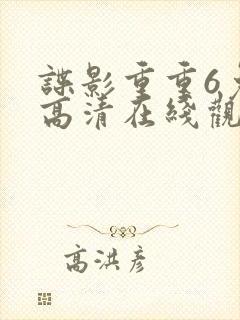 諜影重重6
高清在綫觀
高洪彥